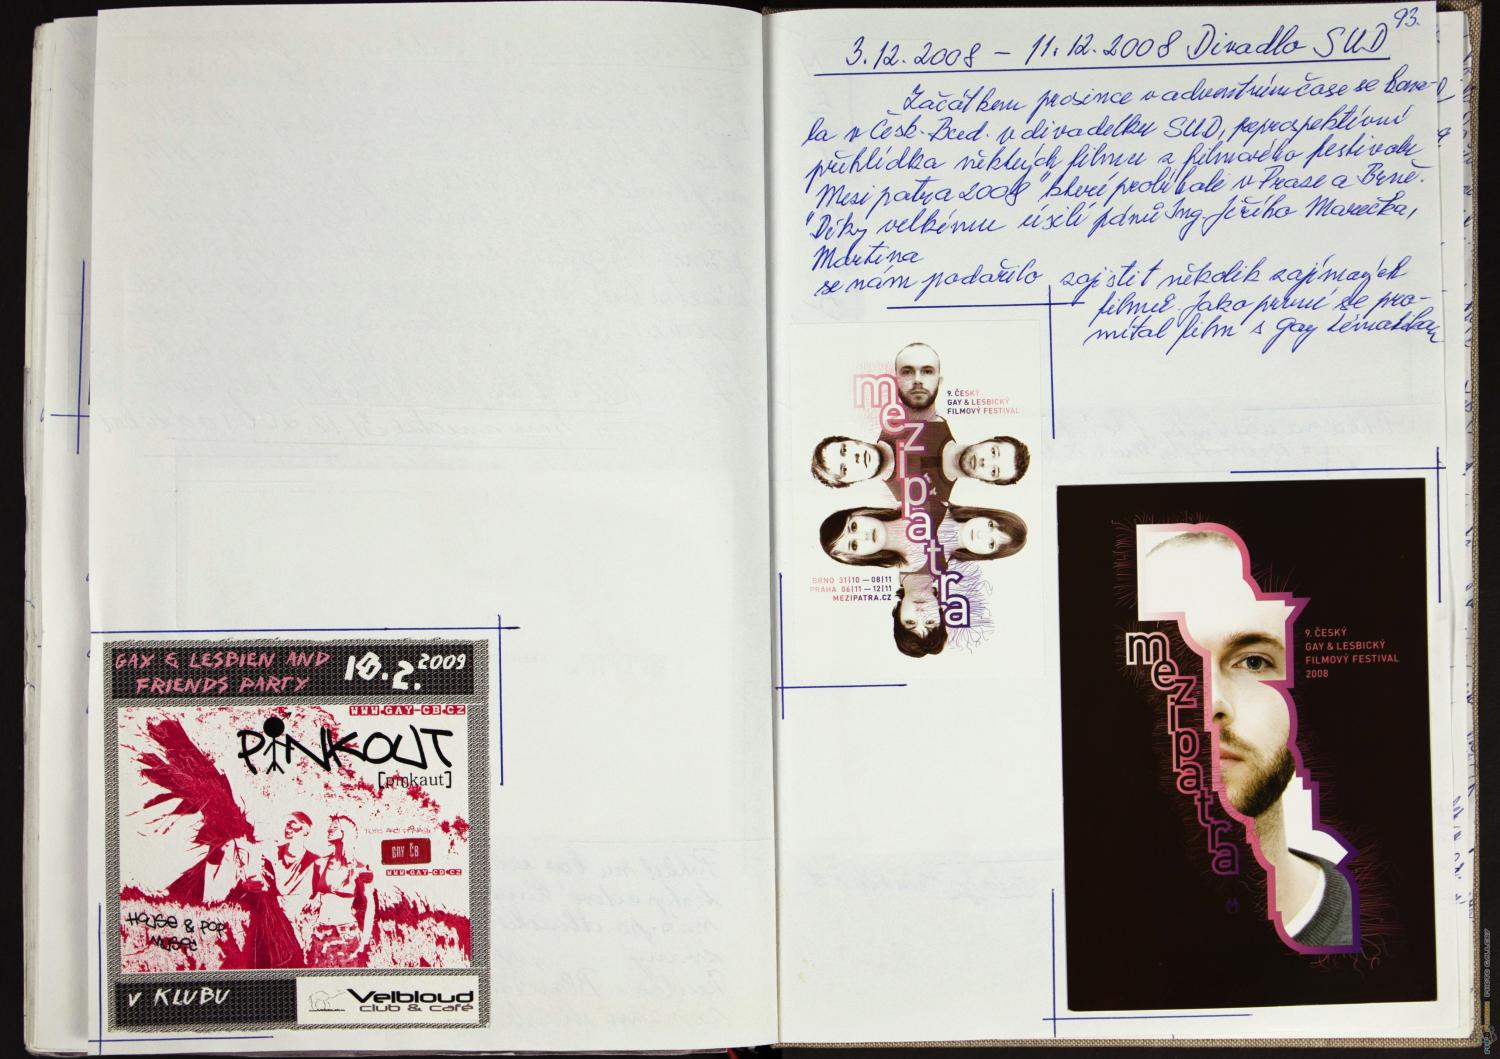 GAY & LESBIEN AND
FRIENDS PARTY
2009
WWW.GAY-CB.CZ
PINKOUT
[pinkaut]
GAY ČB
WWW.GAY-CB.CZ
HOUSE & POP
V KLUBU
Velbloud
club & café
93.
3.12.2008 – 11.12.2008 Divadlo SUD
Začátkem prosince v adventním čase se kona-
la v Česk. Bud. v divadelku SUD,
přehlídka některých filmu z filmového festivalu
Mezi patra 2008" které probíhali v Praze a Brně.
"Díky velkému úsilí pánů Ing. Jiřího Marečka,
Martina
se nám podařilo zajistit několik zajímavých
filmů. Jako první se pro-
mítal film s gay tématikou
mezipatra
9. ČESKÝ
GAY & LESBICKÝ
FILMOVÝ FESTIVAL
BRNO 31|10 — 08|11
PRAHA 06|11 — 12|11
MEZIPATRA.CZ
mezipatra
9. ČESKÝ
GAY & LESBICKÝ
FILMOVÝ FESTIVAL
2008
PHOTO GALLERY